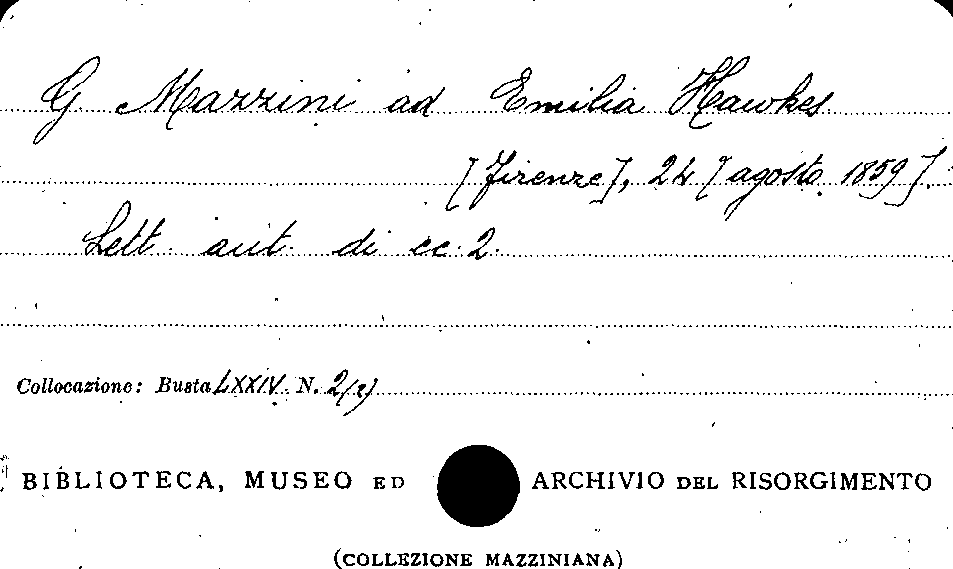 G. Mazzini ad Emilia Hawkes
[Firenze], 24 [agosto 1859].
Lett. aut. di cc. 2.
Collocazione: Busta LXXIV. N. 2(2)
BIBLIOTECA, MUSEO ED ARCHIVIO DEL RISORGIMENTO
(COLLEZIONE MAZZINIANA)